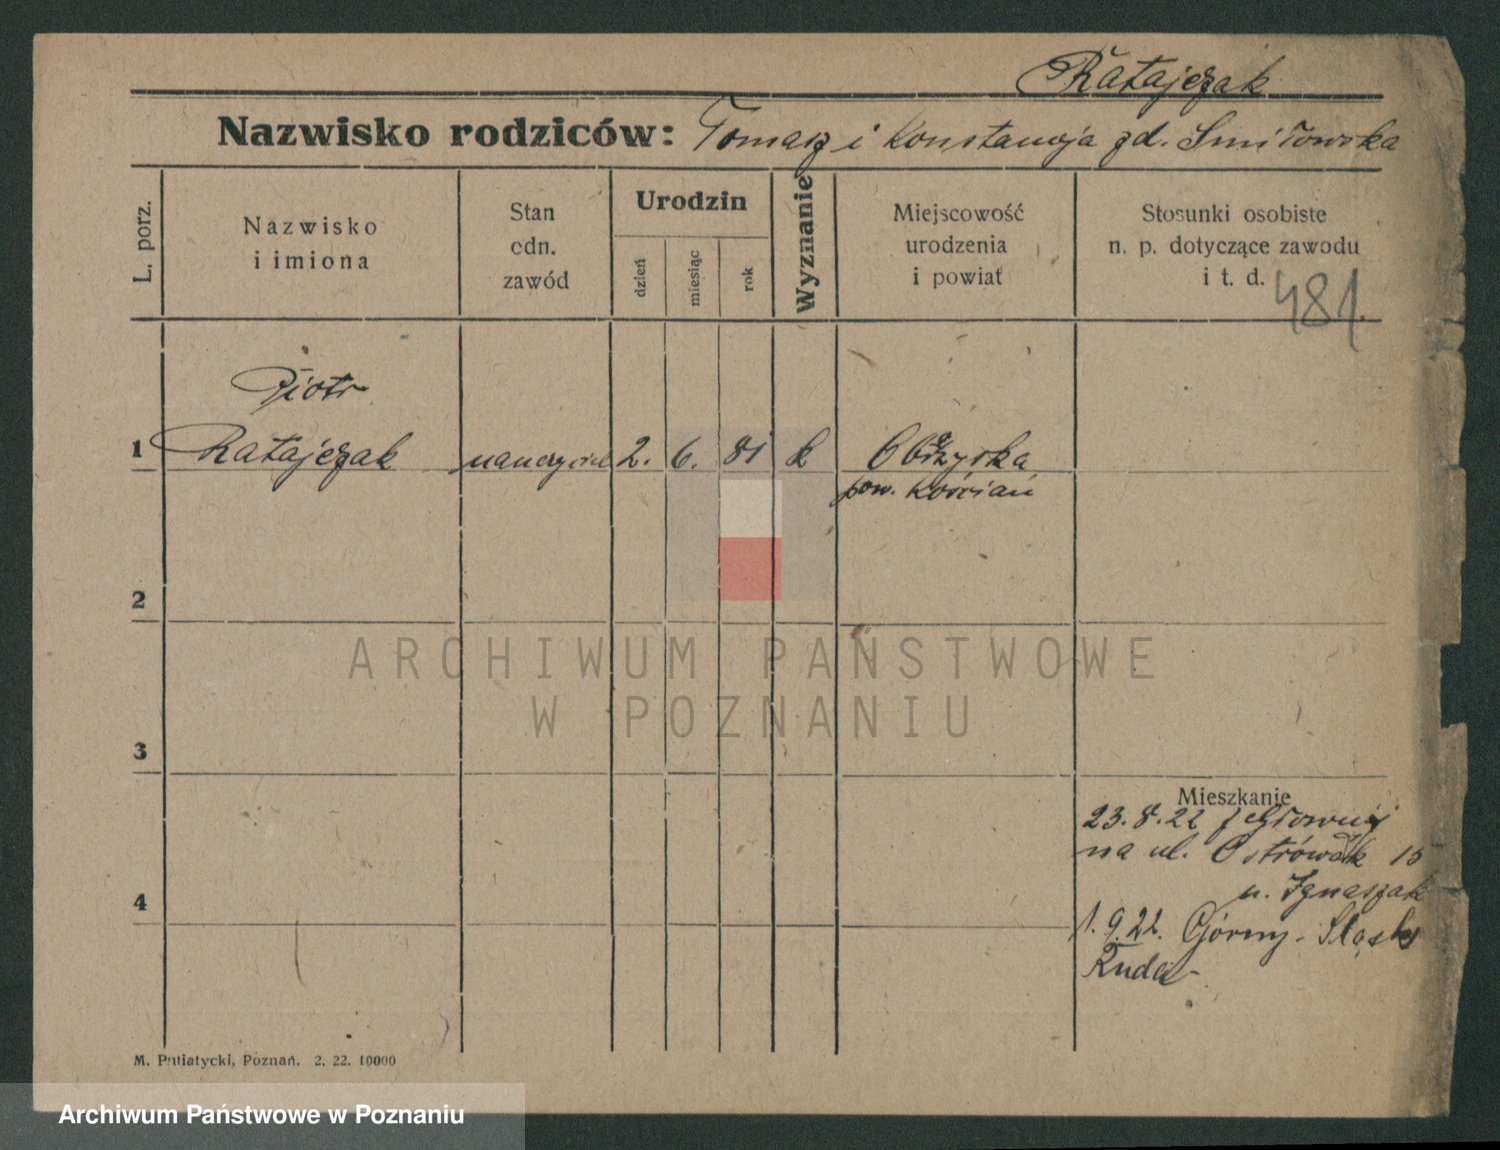 Ratajczak
Nazwisko rodziców: Tomasz i Konstancja zd. Śmiłowska
L. porz.
Nazwisko
i imiona
Stan
cdn.
zawód
Urodzin
dzień
miesiąc
rok
Wyznanie
Miejscowość
urodzenia
i powiat
Stosunki osobiste
n. p. dotyczące zawodu
i t. d.
481.
Piotr
1 Ratajczak nauczyciel 2. 6. 81 k Obrzyska
pow. Kościan
2
ARCHIWUM PAŃSTWOWE
W POZNANIU
3
Mieszkanie
23.8.22 z Głownej
na ul. Ostrówek 15
u. Ignaszak
4
1.9.22. Górny-Śląsk
Ruda-
M. Putiatycki, Poznań. 2. 22. 10000
Archiwum Państwowe w Poznaniu